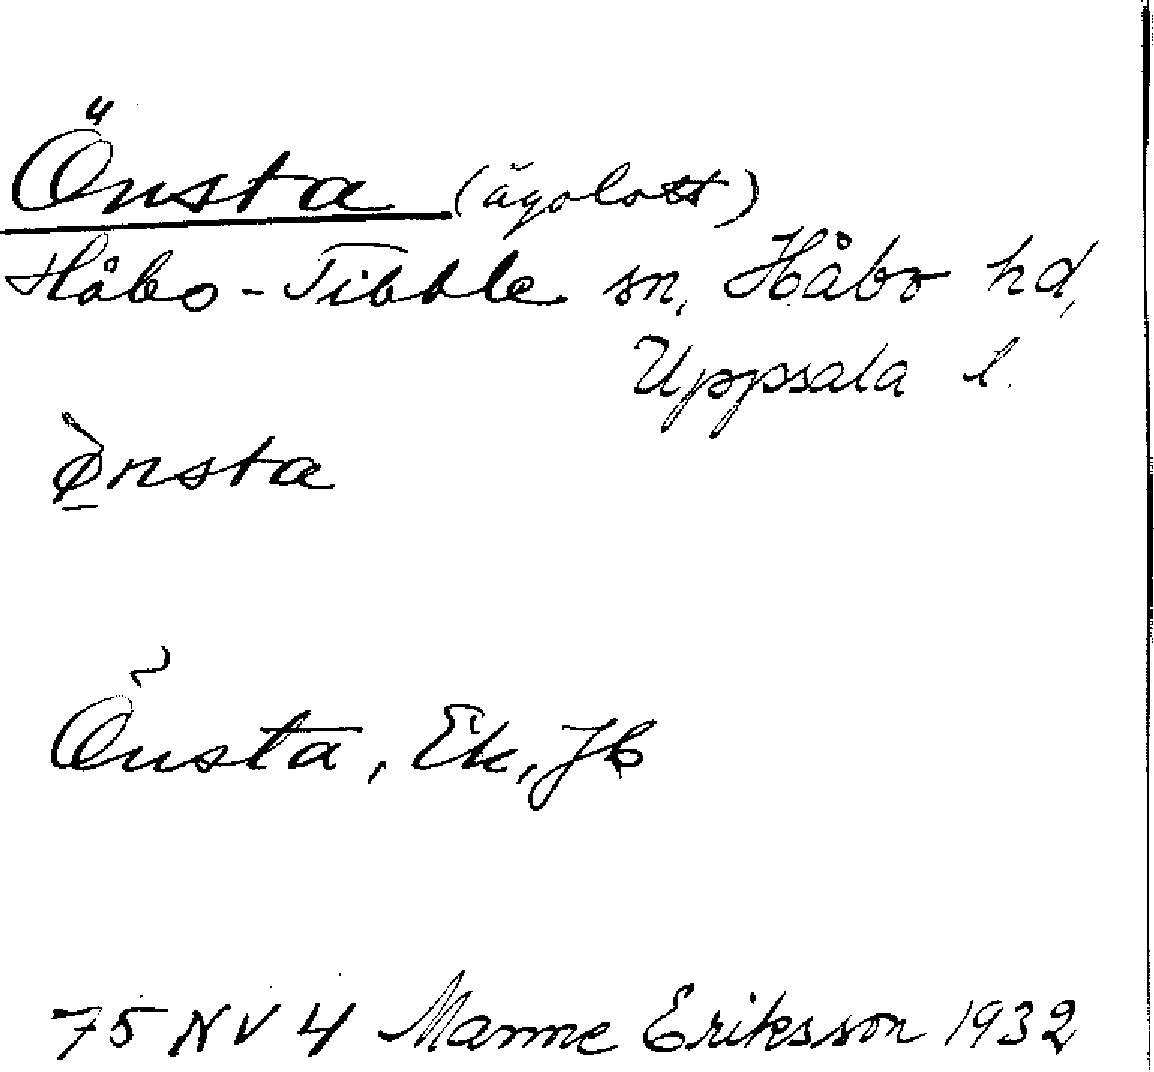 Önsta (ägolott)
Håbo-Tibble sn, Håbo hd,
Uppsala l.
ø̀nsta
Önsta, Ek, Jb
75 NV 4 Manne Eriksson 1932